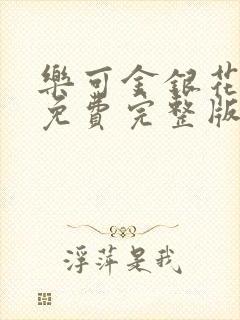 樂可金銀花
免費完整版
浮萍是我